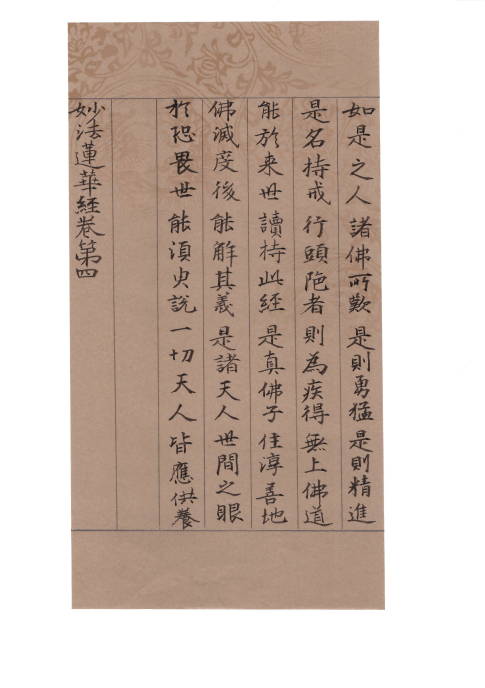 如是之人諸佛所歎是則勇猛是則精進
是名持戒行頭陁者則為疾得無上佛道
能於来世讀持此經是真佛子住淳善地
佛滅度後能解其義是諸天人世間之眼
於恐畏世能須臾說一切天人皆應供養
妙法蓮華経卷第四